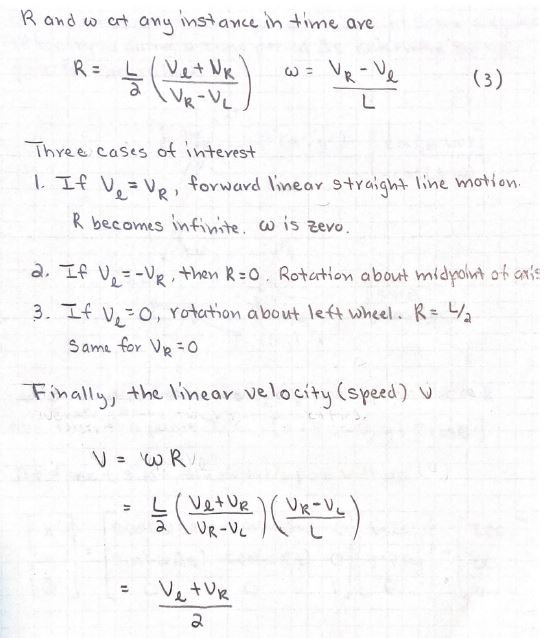 R and ω at any instance in time are
R = L/2 ( (Vℓ + VR) / (VR - VL) )   ω = (VR - Vℓ) / L   (3)
Three cases of interest
1. If Vℓ = VR, forward linear straight line motion.
R becomes infinite. ω is zero.
2. If Vℓ = -VR, then R=0. Rotation about midpoint of axis
3. If Vℓ = 0, rotation about left wheel. R = L/2
Same for VR = 0
Finally, the linear velocity (speed) V
V = ωR
= L/2 ( (Vℓ + VR) / (VR - VL) ) ( (VR - VL) / L )
= (Vℓ + VR) / 2